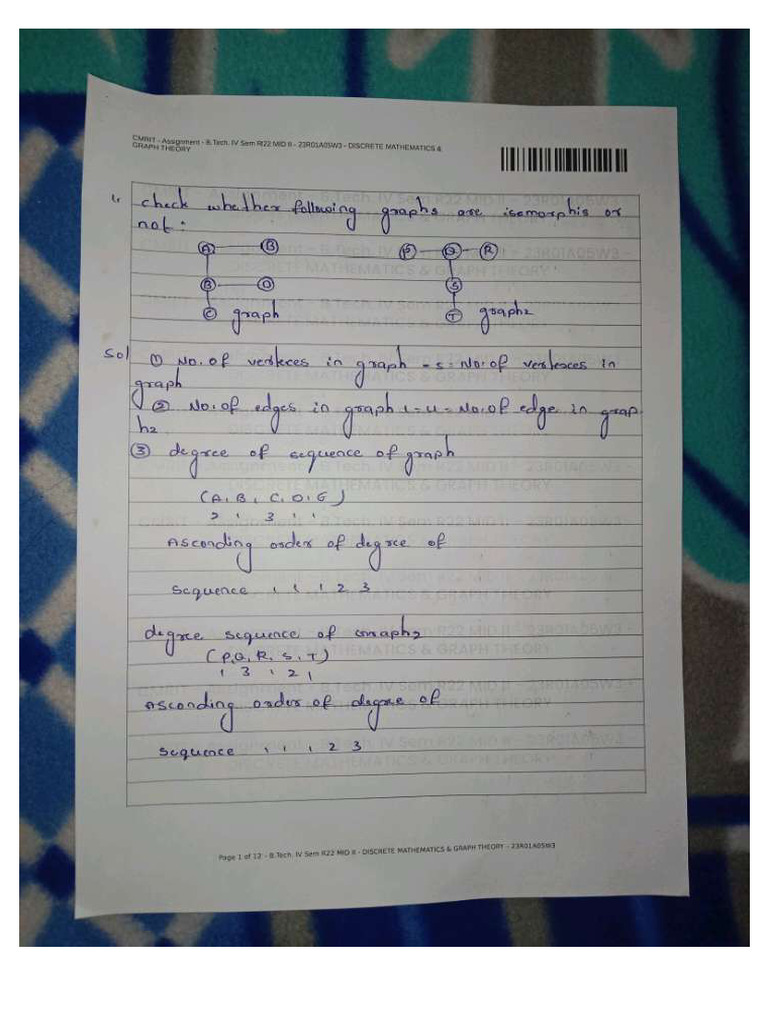 CMRIT - Assignment - B.Tech. IV Sem R22 MID II - 23R01A05W3 - DISCRETE MATHEMATICS &
GRAPH THEORY
1. check whether following graphs are isomorphis or
not:
A B P Q R
B D S
C graph T graph2
Sol ① No. of verteces in graph - 5 = No. of verteces in
graph
② No. of edges in graph 1 = 4 = No. of edge in grap
h2
③ degree of sequence of graph
(A, B, C, D, E)
2 1 3 1 1
Asconding order of degree of
sequence 1 1 1 2 3
degree sequence of Graph2
(P, Q, R, S, T)
1 3 1 2 1
Asconding order of degree of
sequence 1 1 1 2 3
Page 1 of 12 - B.Tech. IV Sem R22 MID II - DISCRETE MATHEMATICS & GRAPH THEORY - 23R01A05W3